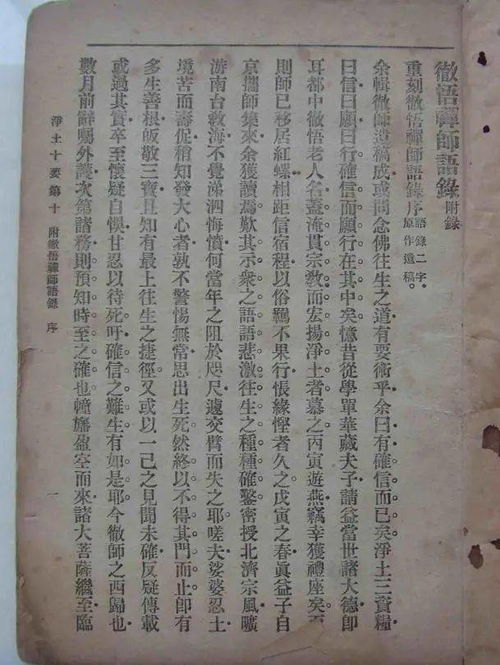 徹悟禪師語錄附錄
重刻徹悟禪師語錄序語錄二字。原作遺稿。
余輯徹師遺稿成或問念佛往生之道有要術乎余曰有確信而已矣淨土三資糧
曰信曰願曰行確信而願行在其中矣憶昔從學單華藏夫子請益當世諸大德即
耳都中徹悟老人名蓋淹貫宗教而宏揚淨土者慕之丙寅遊燕竊幸獲禮座矣至
則師已移居紅螺相距信宿程以俗羈不果行悵緣慳者久之戊寅之春眞益子自
京攜師集來余獲讀焉歎其示衆之語語悲激往生之種種確鑿密授北濟宗風曠
游南台敎海不覺涕泗悔憤何當年之阻於咫尺遽交臂而失之耶嗟夫娑婆忍土
境苦而壽促稍知發大心者孰不警惕無常思出生死然終以不得其門而止卽有
多生善根皈敬三寶且知有最上往生之捷徑又或以一己之見聞未確反疑傳載
或過其實卒至懷疑自悞甘忍以待死吁確信之難生有如是耶今徹師之西歸也
數月前辭囑外護次第諸務則預知時至之確也幢旛盈空而來諸大菩薩繼至臨
淨土十要第十 附徹悟禪師語錄 序 一